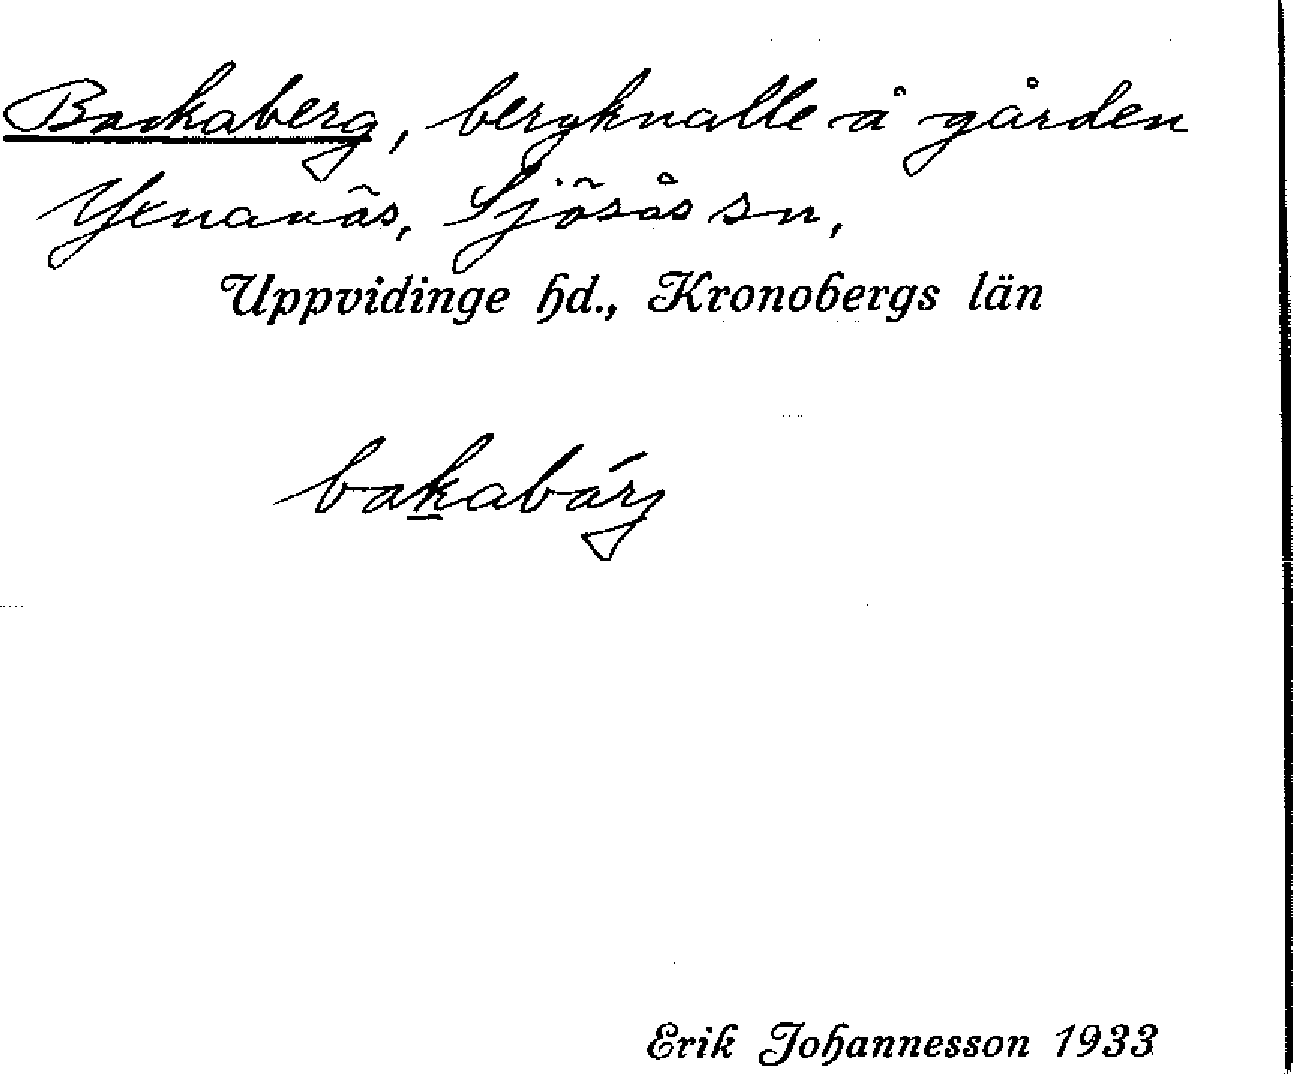 Backaberg, bergknalle å gården
Yxnanäs, Sjösås sn,
Uppvidinge hd., Kronobergs län
bakabárj
Erik Johannesson 1933